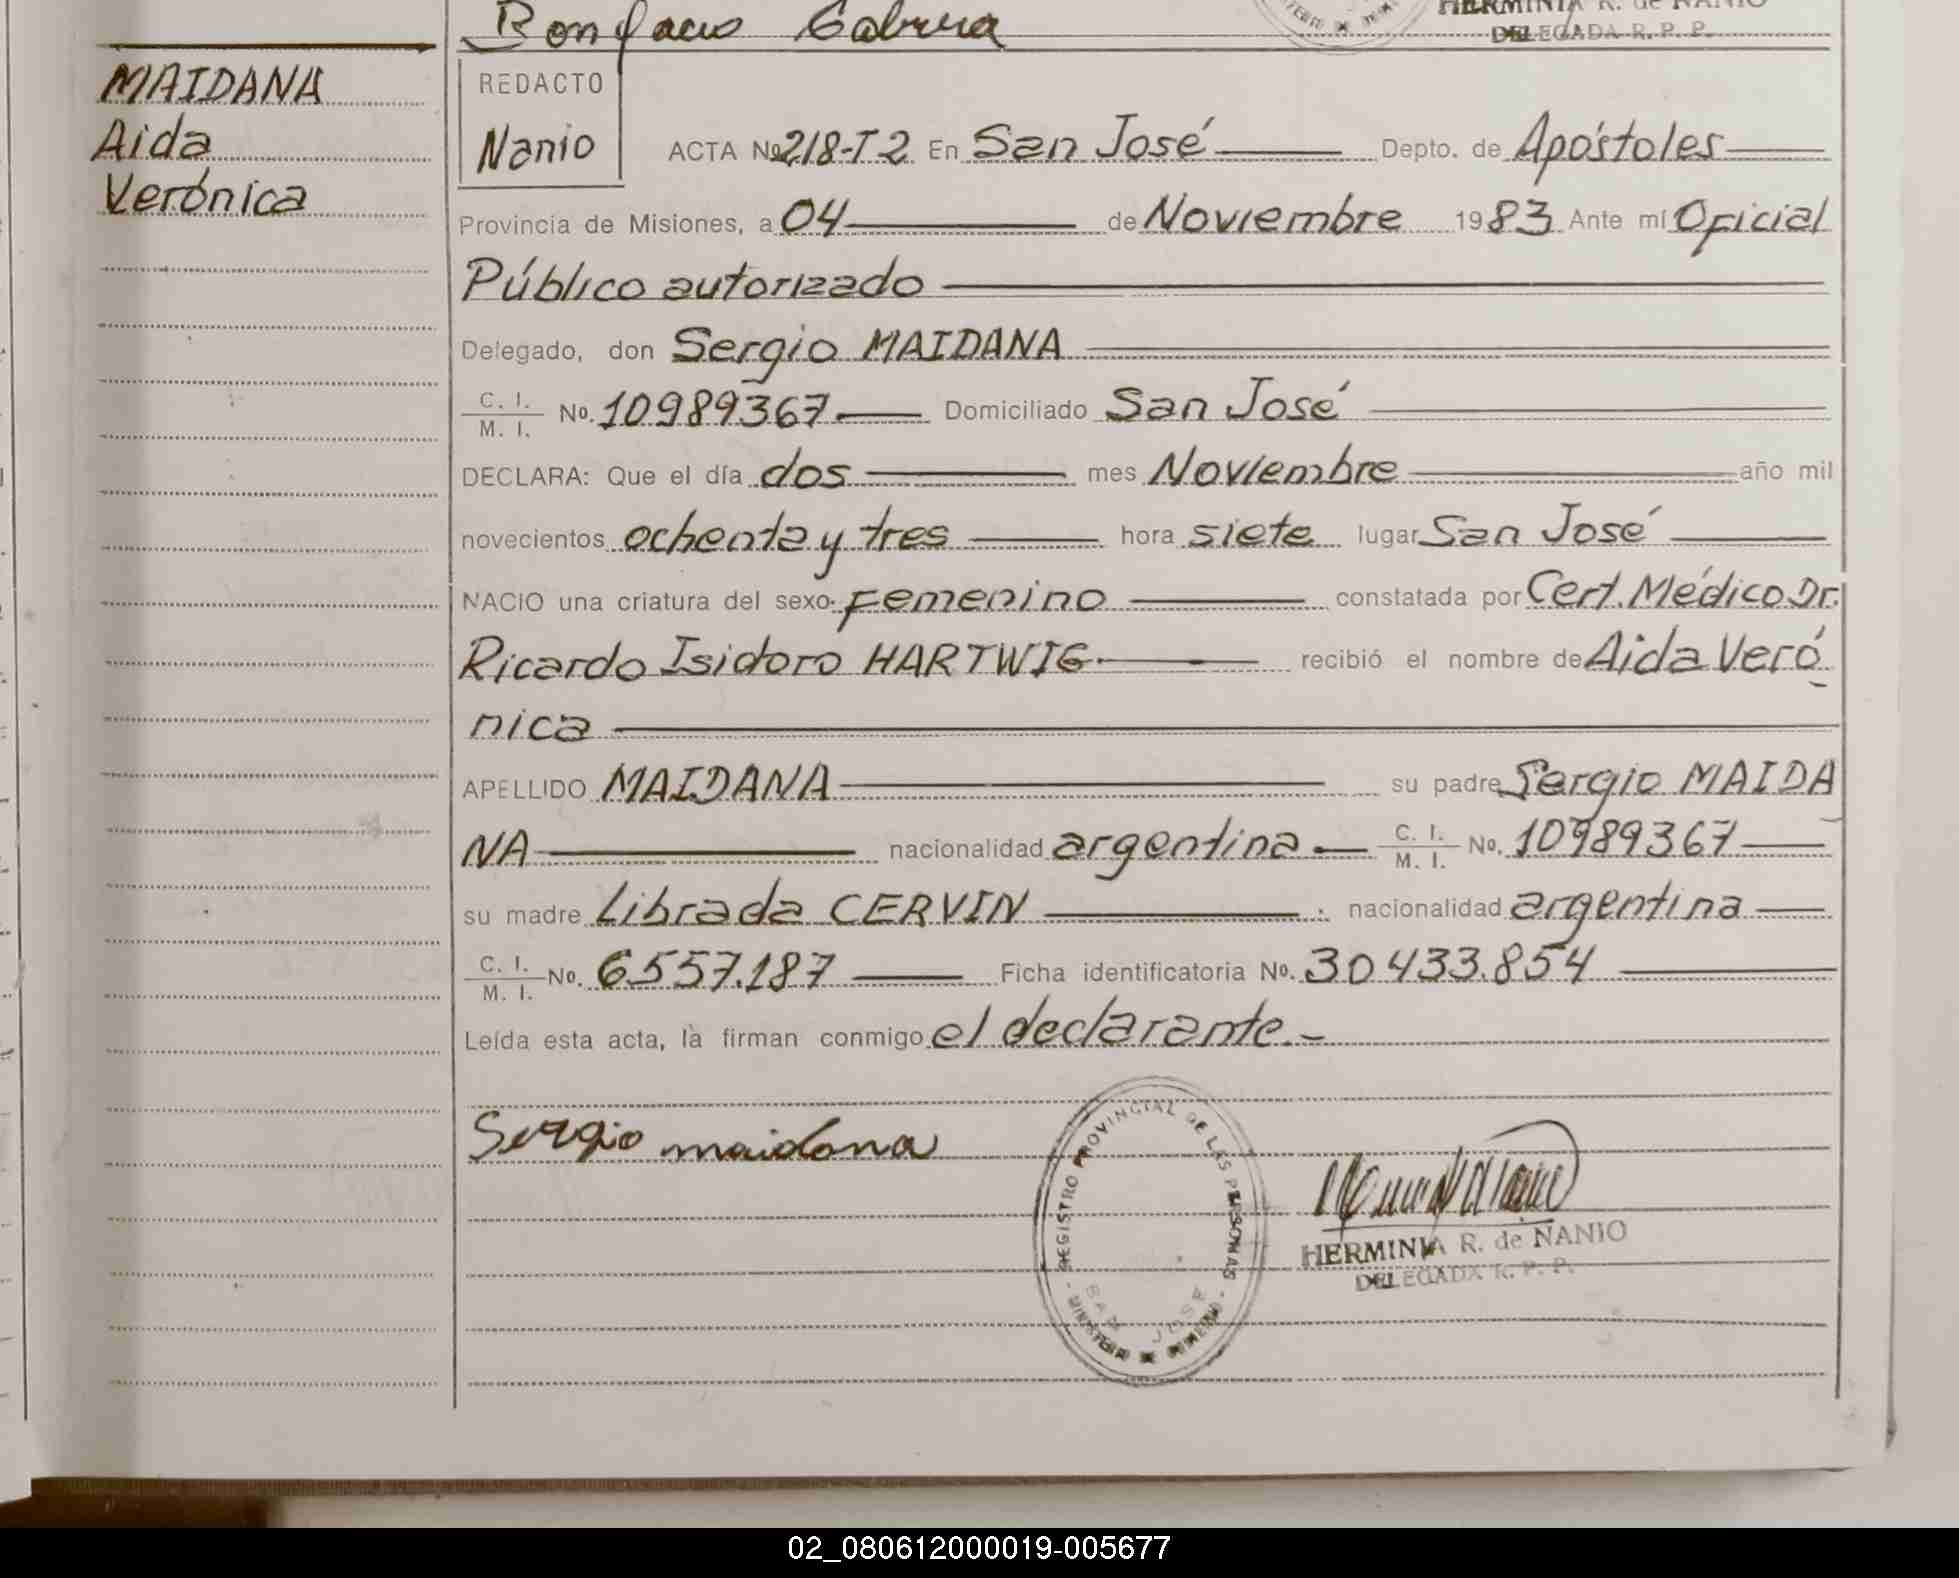 Bonifacio Cabrera
HERMINIA R. de NANIO
DELEGADA R. P. P.
MAIDANA
Aida
Verónica
REDACTO
Nanio
ACTA Nº 218-T2 En San José Depto. de Apóstoles
Provincia de Misiones, a 04 de Noviembre 1983 Ante mí Oficial
Público autorizado
Delegado, don Sergio MAIDANA
C. I.
M. I. No. 10989367 Domiciliado San José
DECLARA: Que el día dos mes Noviembre año mil
novecientos ochenta y tres hora siete lugar San José
NACIO una criatura del sexo femenino constatada por Cert. Médico Dr.
Ricardo Isidoro HARTWIG recibió el nombre de Aida Veró
nica
APELLIDO MAIDANA su padre Sergio MAIDA
NA nacionalidad argentina C. I.
M. I. No. 10989367
su madre Librada CERVIN nacionalidad argentina
C. I.
M. I. No. 6.557.187 Ficha identificatoria No. 30.433.854
Leída esta acta, la firman conmigo el declarante.-
Sergio maidana
REGISTRO PROVINCIAL DE LAS PERSONAS
SAN JOSE
HERMINIA R. de NANIO
DELEGADA R. P. P.
02_080612000019-005677